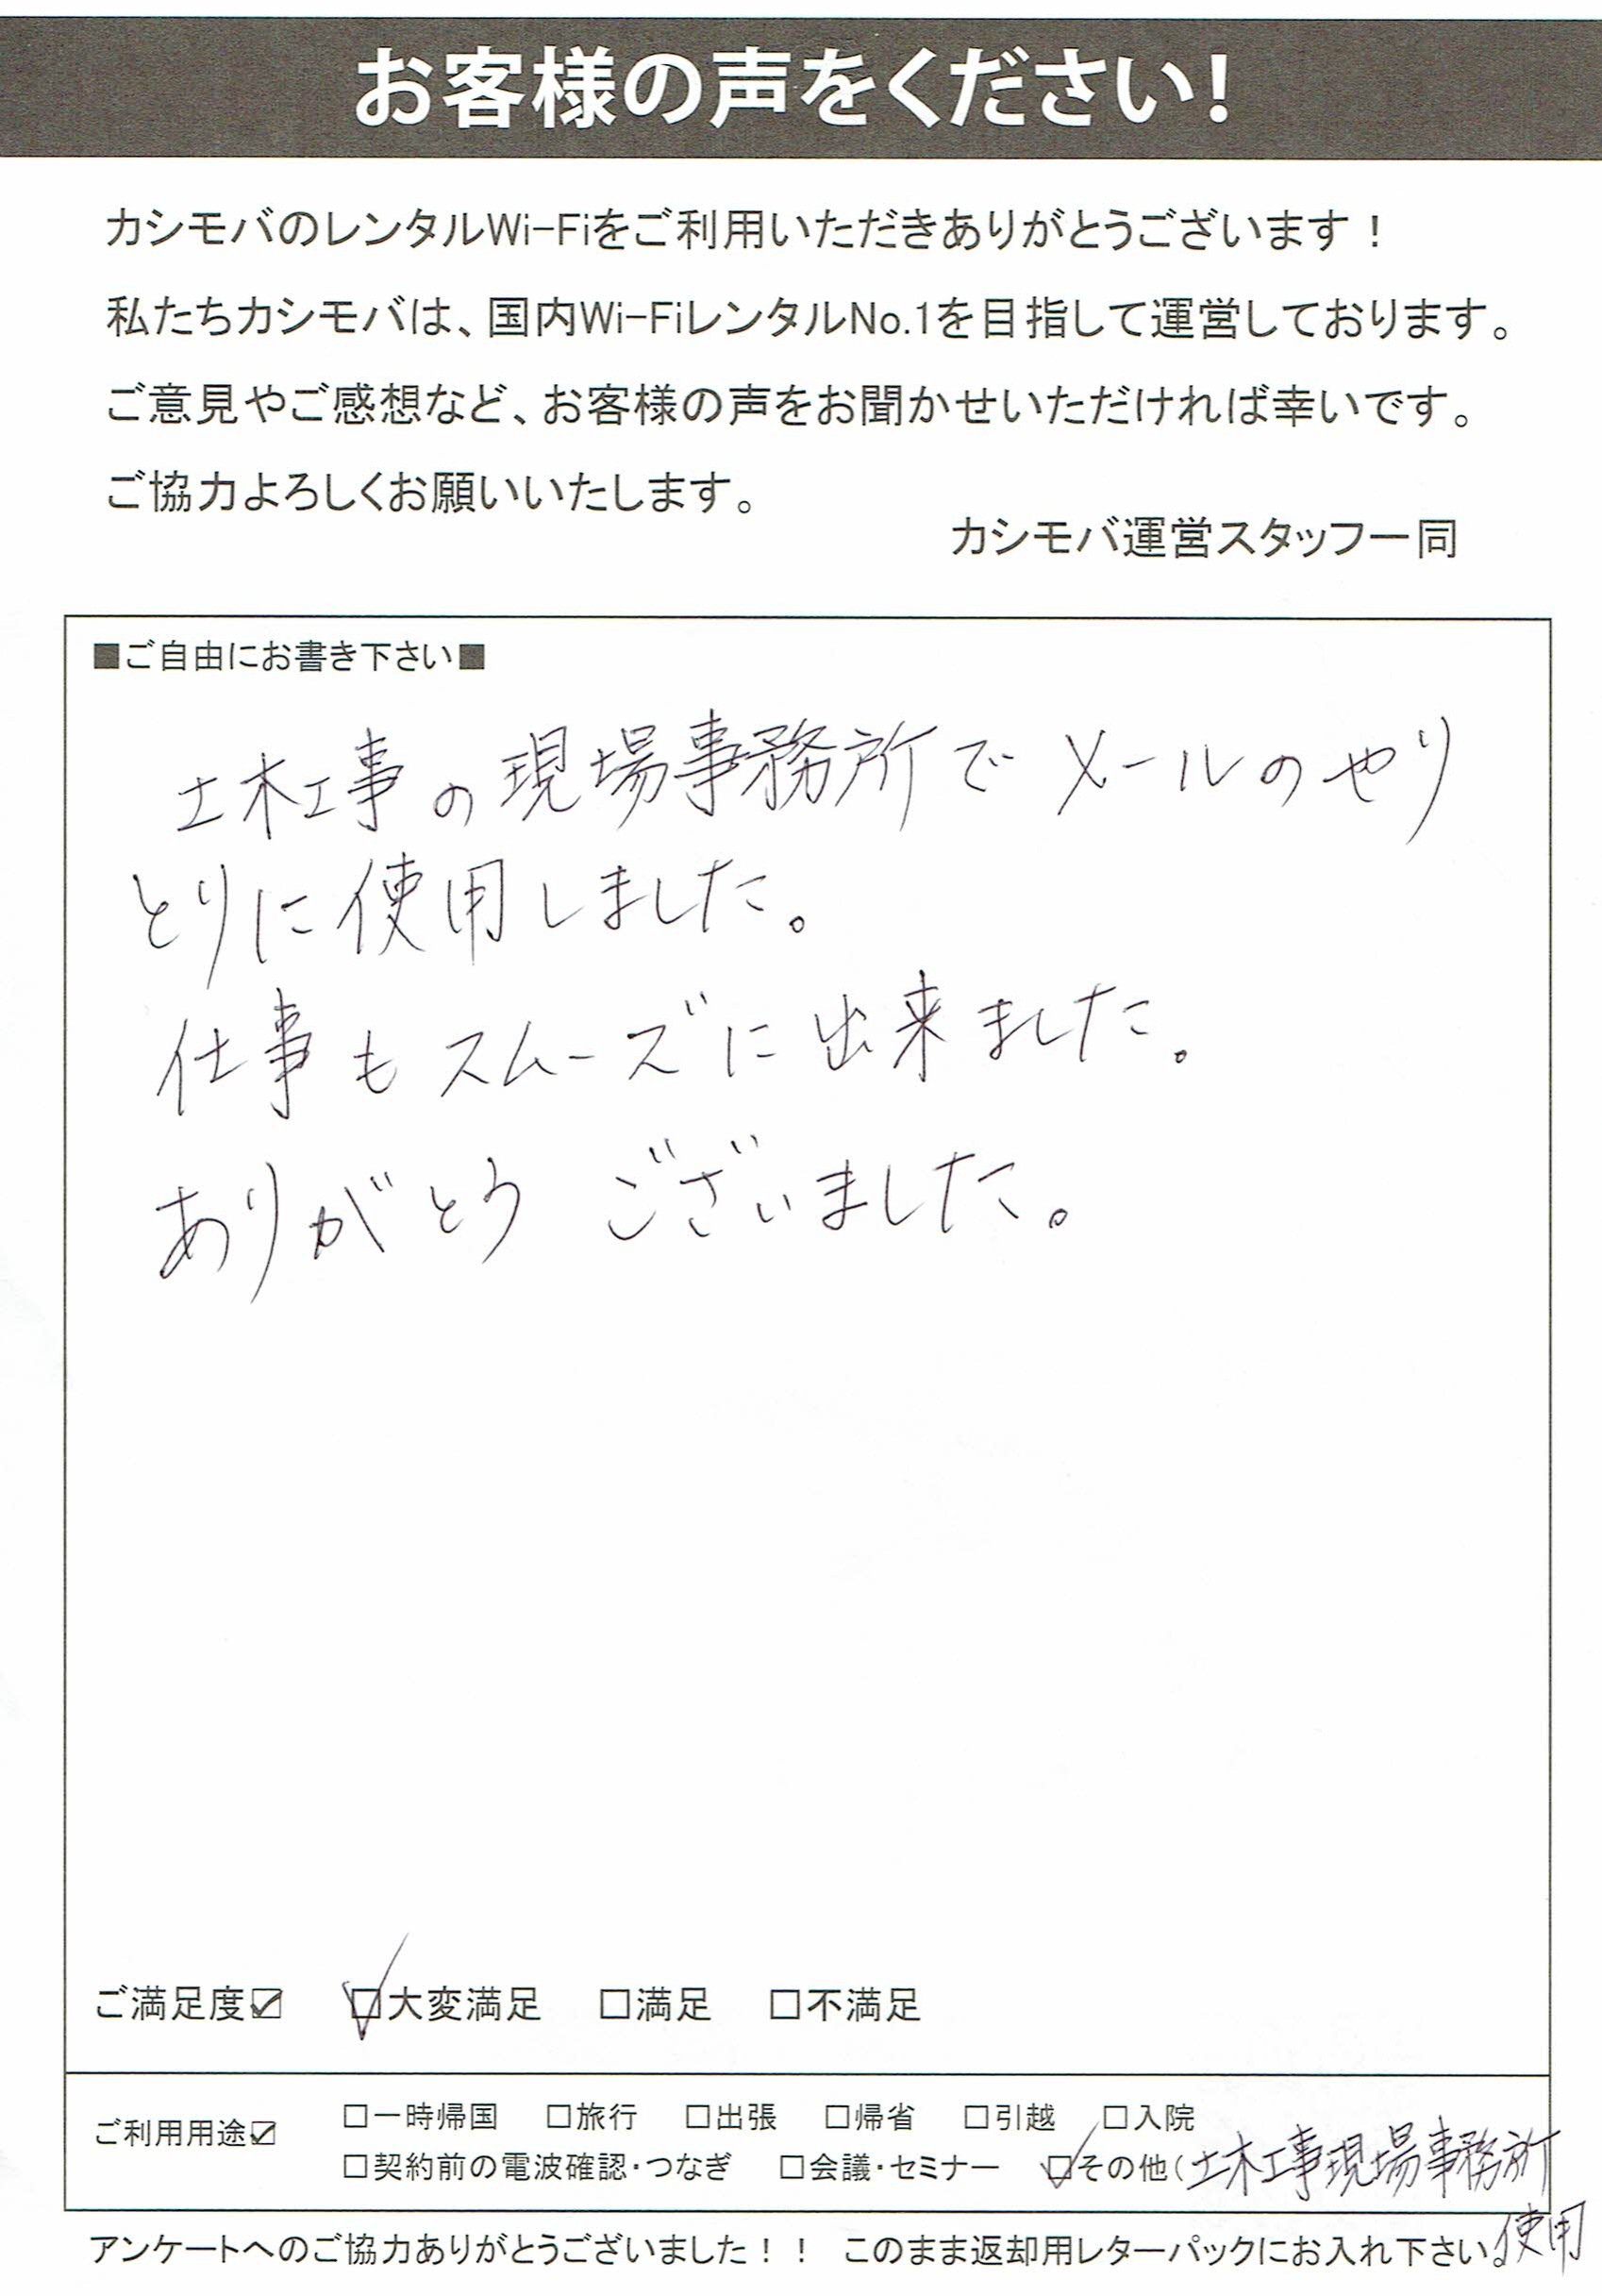 お客様の声をください！
カシモバのレンタルWi-Fiをご利用いただきありがとうございます！
私たちカシモバは、国内Wi-FiレンタルNo.1を目指して運営しております。
ご意見やご感想など、お客様の声をお聞かせいただければ幸いです。
ご協力よろしくお願いいたします。
カシモバ運営スタッフ一同
■ご自由にお書き下さい■
土木工事の現場事務所でメールのやり
とりに使用しました。
仕事もスムーズに出来ました。
ありがとうございました。
ご満足度☑ ☑大変満足 □満足 □不満足
ご利用用途☑ □一時帰国 □旅行 □出張 □帰省 □引越 □入院
□契約前の電波確認・つなぎ □会議・セミナー ☑その他（土木工事現場事務所
使用
アンケートへのご協力ありがとうございました！！ このまま返却用レターパックにお入れ下さい。